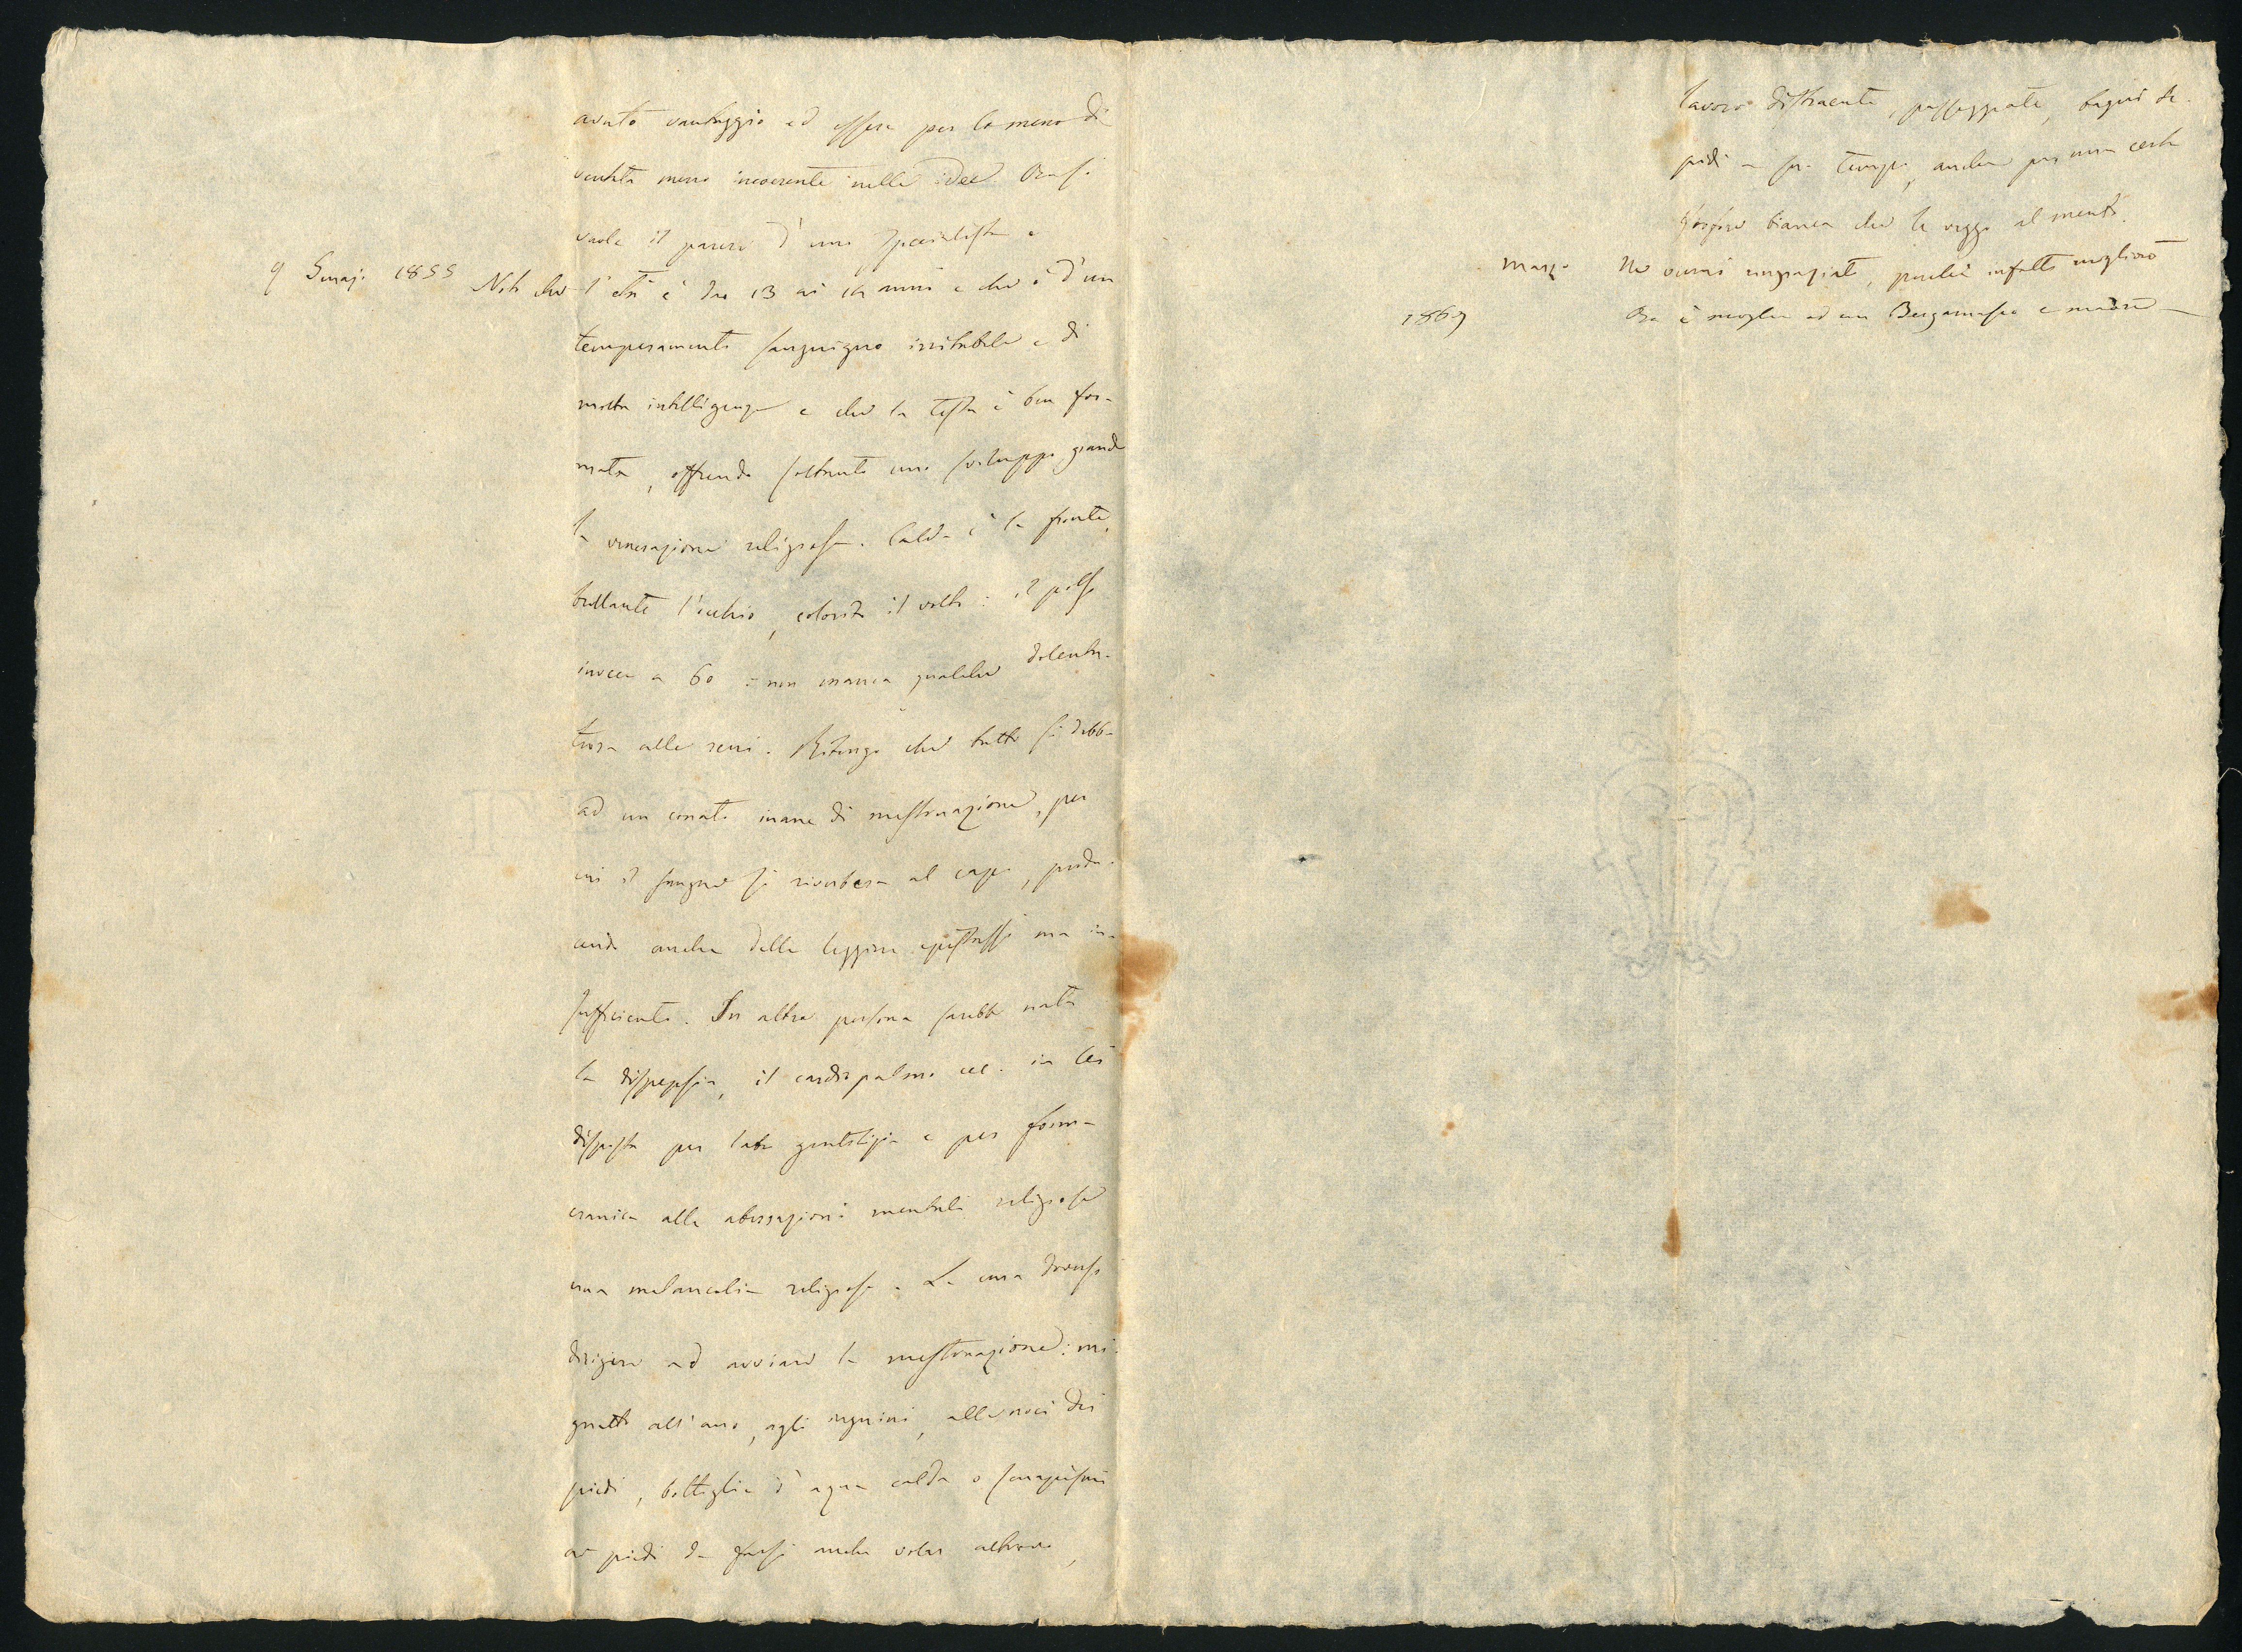 avuto vantaggio ed essere per lo meno di
ventata meno incoerente nelle idee. Ora si
vuole il parere d'uno specialista e
9 Genajo 1855 Noto che l'età è dai 13 ai 14 anni e che è d'un
temperamento sanguigno irritabile e di
molta intelligenza e che la testa è ben for-
mata, offrendo soltanto uno sviluppo grande
la venerazione religiosa. Calda è la fronte,
brillante l'occhio, colorito il volto: il polso
invece a 60: non manca qualche dolentu-
tura alle reni. Ritengo che tutto si debba
ad un conato inane di mestruazione, per
cui il sangue si riverbera al capo, produ-
cendo anche delle leggiere epistassi ma in-
sufficienti. In altra persona sarebbe nata
la dispepsia, il cardiopalmo ecc. in lei
disposta per labe gentilizia e per forma
cranica alle aberrazioni mentali religiose
una melancolia religiosa. La cura doversi
dirigere ad avviare la mestruazione: mi-
gnatte all'ano, agli inguini, alle noci dei
piedi, bottiglie d'aqua calda o senapismi
ai piedi da farsi anche volar altrove,
lavoro distraente, passeggiate, bagni te-
pidi a suo tempo, anche per una certa
che le veggo al mento.
Marzo Ne venni ringraziato, poichè infatti migliorò
1869 Ora è moglie ad un Bergamasco e madre —